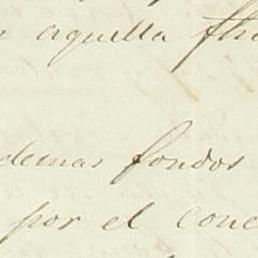 aquella
demas fondos
por el conc